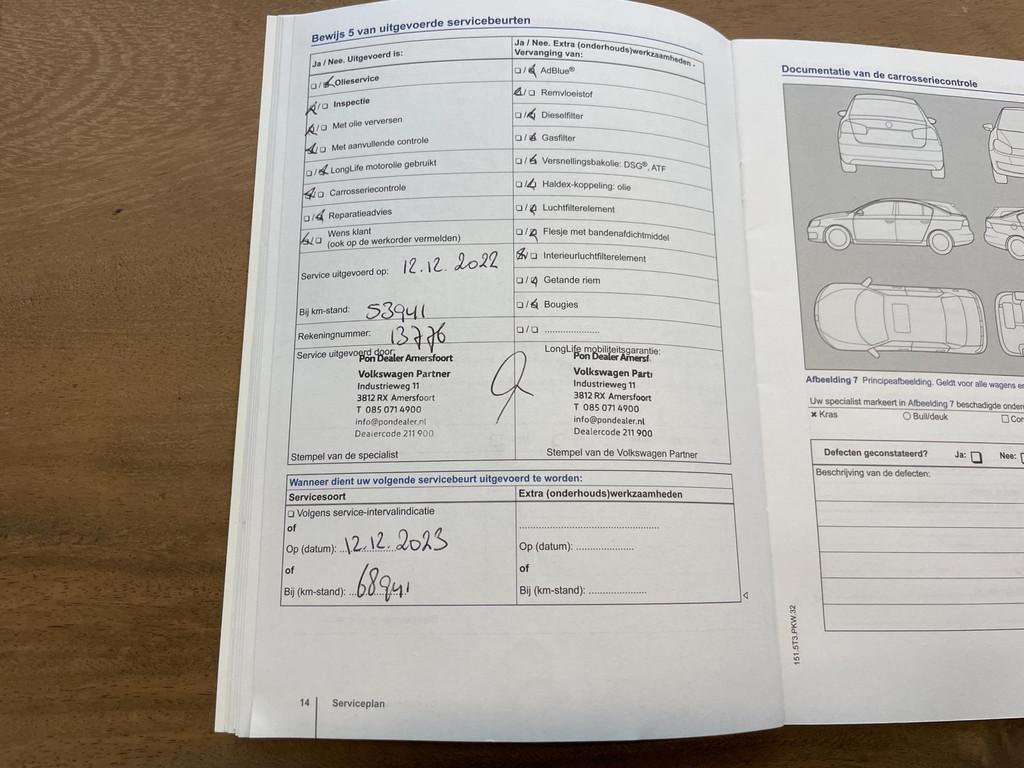 Bewijs 5 van uitgevoerde servicebeurten
Ja / Nee. Uitgevoerd is:
Olieservice
Inspectie
Met olie verversen
Met aanvullende controle
LongLife motorolie gebruikt
Carrosseriecontrole
Reparatieadvies
Wens klant
(ook op de werkorder vermelden)
Service uitgevoerd op: 12.12.2022
Bij km-stand: 53941
Rekeningnummer: 13776
Service uitgevoerd door:
Pon Dealer Amersfoort
Volkswagen Partner
Industrieweg 11
3812 RX Amersfoort
T 085 071 4900
info@pondealer.nl
Dealercode 211 900
Stempel van de specialist
Ja / Nee. Extra (onderhouds)werkzaamheden -
Vervanging van:
AdBlue®
Remvloeistof
Dieselfilter
Gasfilter
Versnellingsbakolie: DSG®, ATF
Haldex-koppeling: olie
Luchtfilterelement
Flesje met bandenafdichtmiddel
Interieurluchtfilterelement
Getande riem
Bougies
LongLife mobiliteitsgarantie:
Pon Dealer Amersf
Volkswagen Part
Industrieweg 11
3812 RX Amersfoort
T 085 071 4900
info@pondealer.nl
Dealercode 211 900
Stempel van de Volkswagen Partner
Wanneer dient uw volgende servicebeurt uitgevoerd te worden:
Servicesoort
Volgens service-intervalindicatie
of
Op (datum): 12.12.2023
of
Bij (km-stand): 68941
Extra (onderhouds)werkzaamheden
Op (datum):
of
Bij (km-stand):
14 Serviceplan
Documentatie van de carrosseriecontrole
Afbeelding 7 Principeafbeelding. Geldt voor alle wagens
Uw specialist markeert in Afbeelding 7 beschadigde
Kras Buil/deuk
Defecten geconstateerd? Ja: Nee:
Beschrijving van de defecten:
151.5T3.PKW.32